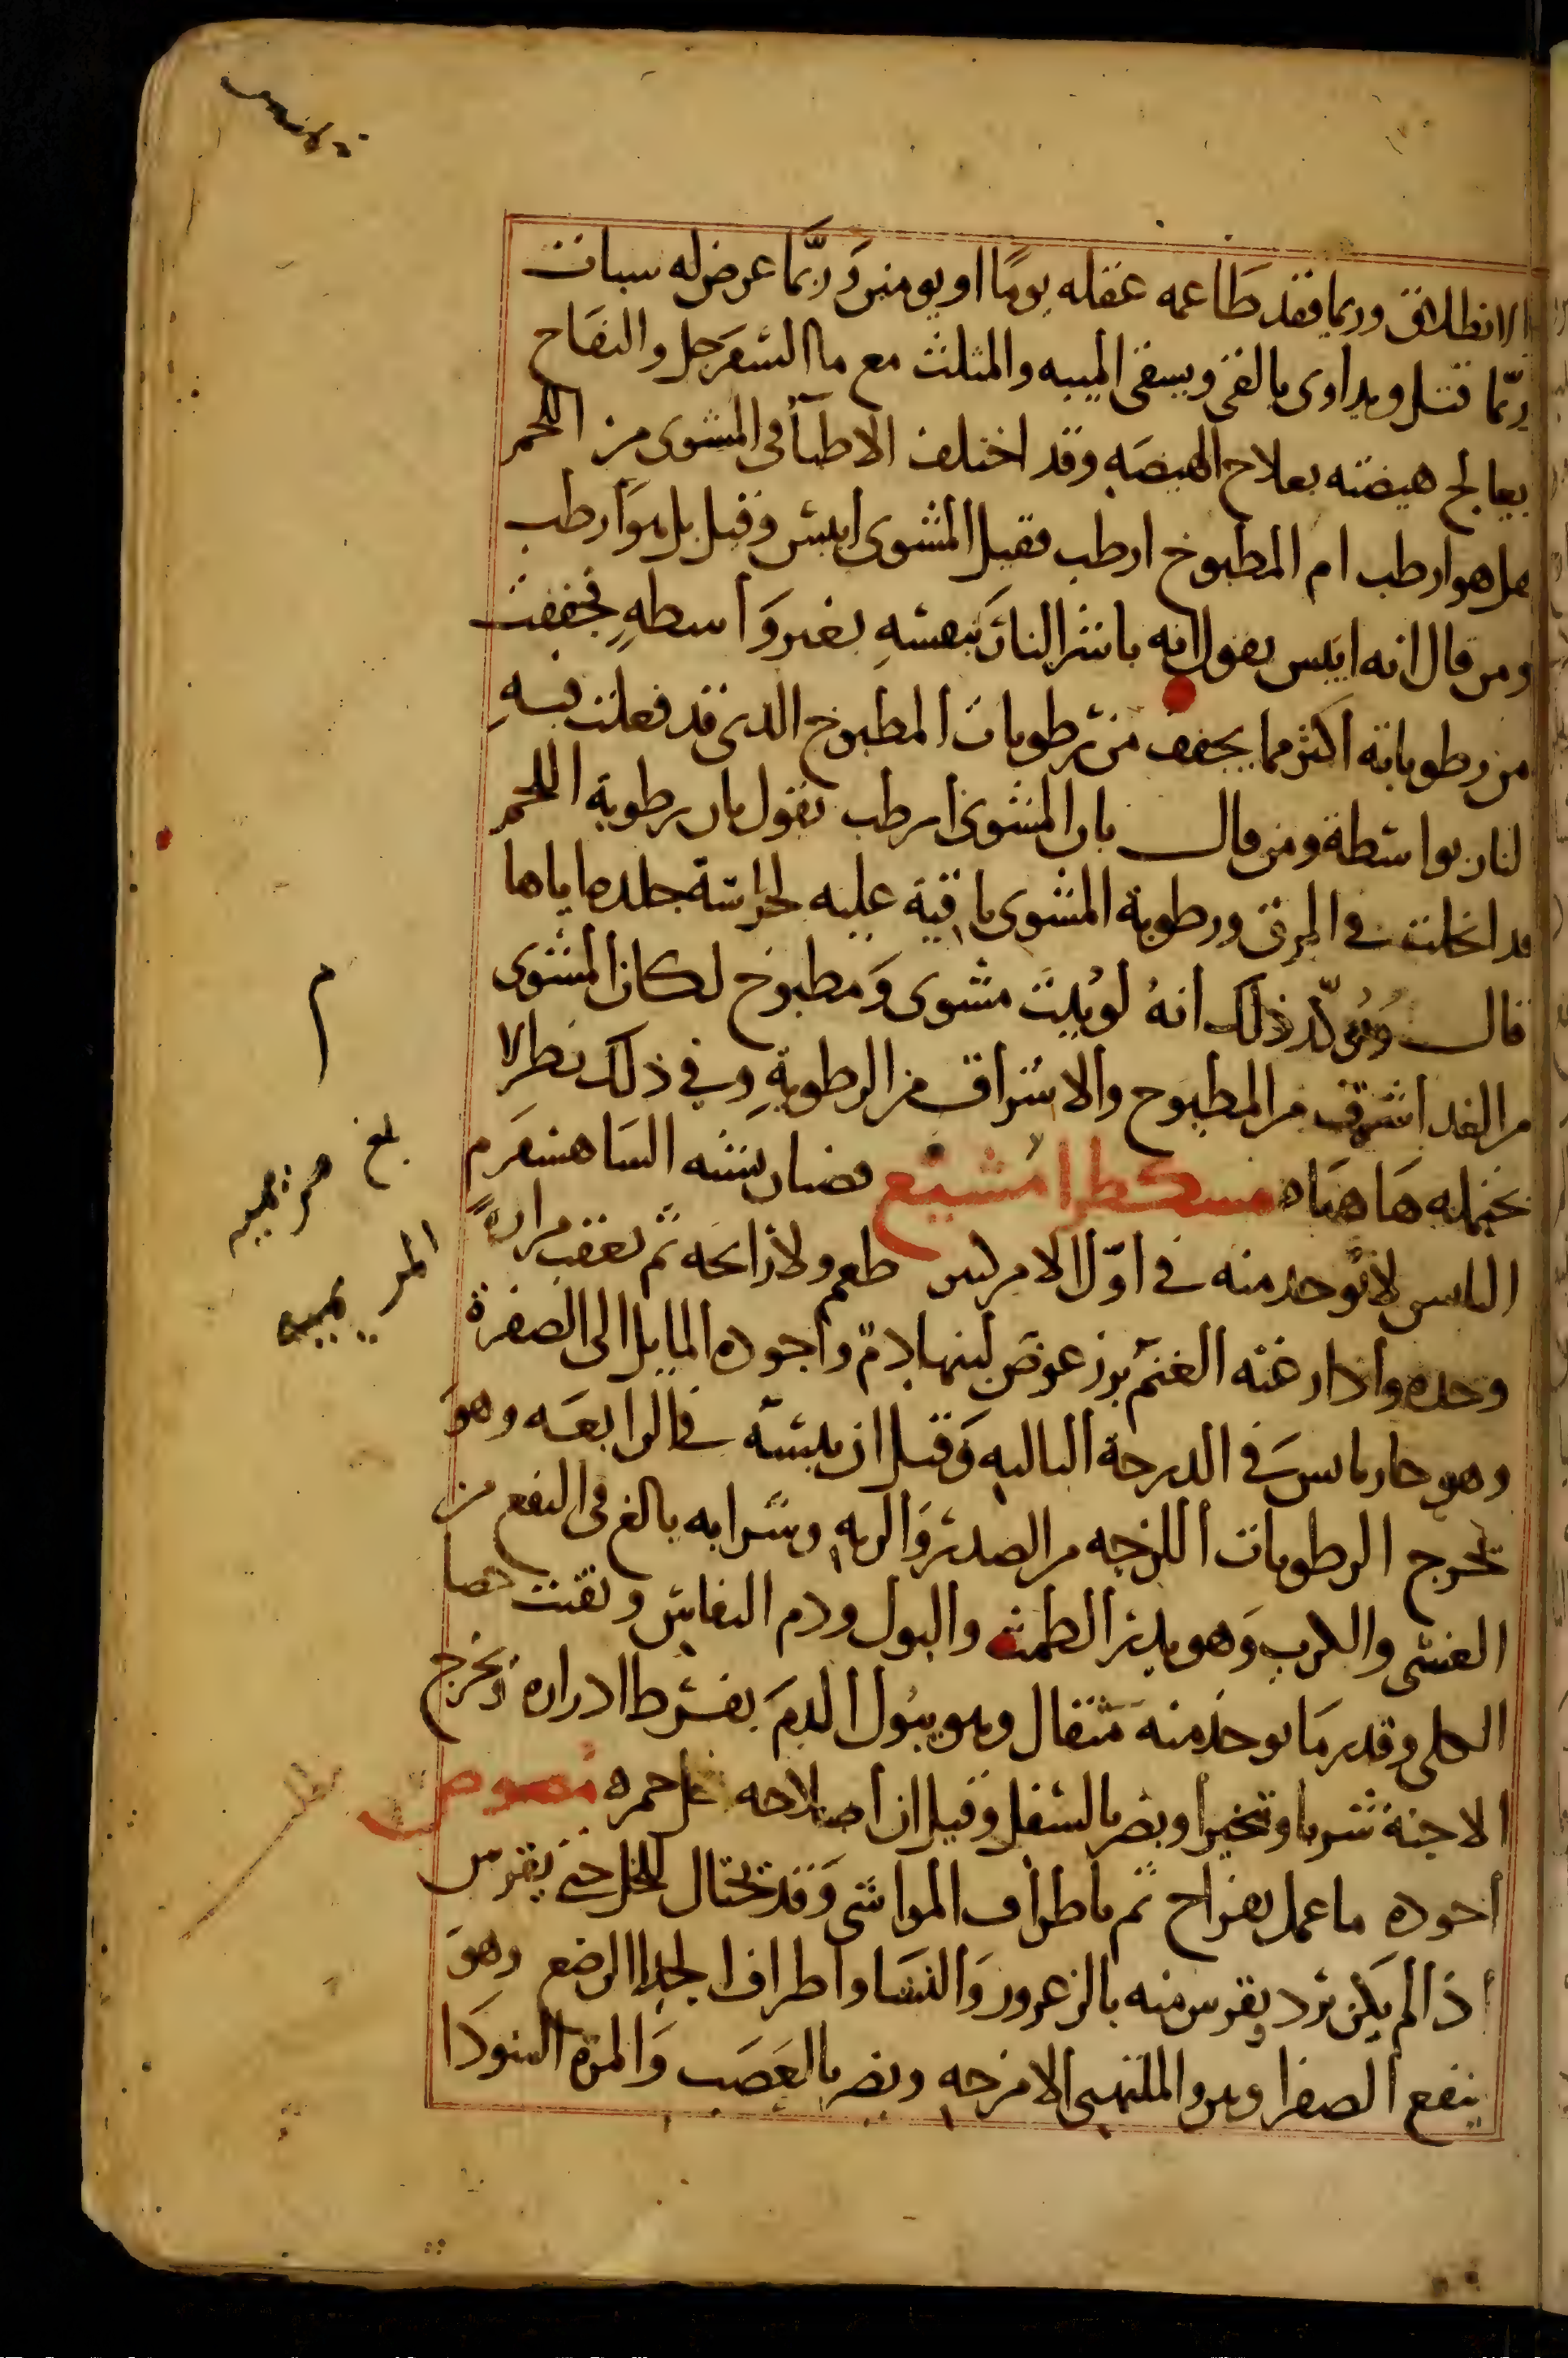 الانطلاق وربما فقد طَاعمه عقله يومًا او يومين وَربَّمَا عرض له سبات
ربّما قتل ويداوى بالقى ويسقى الميبه والمثلث مع ما السفرجل والتفاح
يعالج هيضته بعلاج الهيضَه وقد اختلف الاطبآ فى المشوى من اللحم
هل هو ارطب ام المطبوخ ارطب فقيل المشوى ايبس وقيل بل هوَ ارطب
ومن قال انه ايبس يقول انه باشر النار بنفسِه بغير وَاسطهٍ فجففت
من رطوباته اكثر مما يجفف من رطوبات المطبوخ الذى قد فعلت فيهِ
لنار بواسطة ومن قال بان المشوى ارطب يقول بان رطوبة اللحم
قد انحلت فى المرق ورطوبة المشوى باقية عليه لحراسة جلده اياها
قال ويُؤكّد ذلك انهُ لو بُيّت مشوى وَمطبوخ لكان المشوى
من الغد اشرق من المطبوخ والاشراق من الرطوبةِ وفي ذلك نظر لا
نحتمله هَا هنَاه مسكطرامشيع قضبان يشبه الشاهسفرم
اليابس لا يُوجد منه في اوّل الامر ليس طعم ولا رائحه ثم تعقب مرارةً
وحده واذا رعته الغنم برز عوض لبنها دمّ واجوده المايل الى الصفرة
وهو حار يابس في الدرجة الثالثه وَقيل ان يبسَه فى الرابعَه وهوَ
يخرج الرطوبات اللزجه من الصدر وَالريه وشرابه بالغ فى النفع من
الغشى والكرب وَهو يدر الطمث والبول ودم النفاس ويفتت حصا
الكلى وقدر مَا يوخذ منه مثقال وهو يبول الدمَ بفرط ادراره ويخرج
الاجنة شربا وتبخيرا ويضر بالسفل وقيل ان اصلاحه خل خمره مَصوص
اجوده ما عمل بفراخ ثم باطراف المواشى وَقد يحتال للخل حتى يقرس
اذا لم يكن برد ويقرس منه بالزعرور وَالنشا واطراف الجدا الرضع وهوَ
ينفع الصفرا وهو والملتهبى الامزجه ويضر بالعَصَب وَالمرة السودَا
م
بلغ